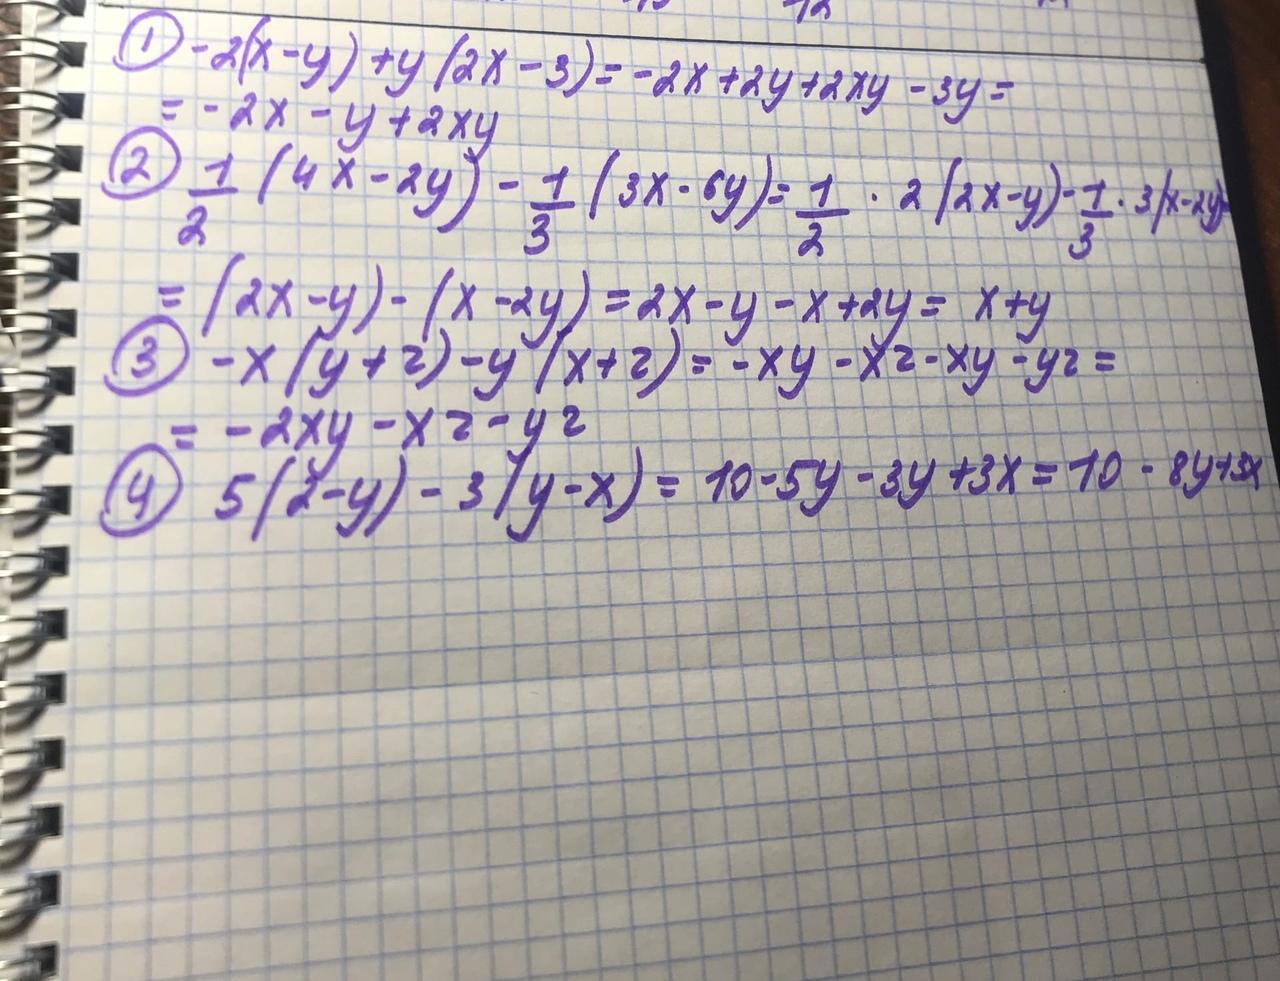 12
① -2(x-y)+y(2x-3)=-2x+2y+2xy-3y=
=-2x-y+2xy
② 1/2(4x-2y)-1/3(3x-6y)=1/2·2(2x-y)-1/3·3(x-2y)=
=(2x-y)-(x-2y)=2x-y-x+2y= x+y
③ -x(y+z)-y(x+z)=-xy-xz-xy-yz=
=-2xy-xz-yz
④ 5(2-y)-3(y-x)=10-5y-3y+3x=10-8y+3x